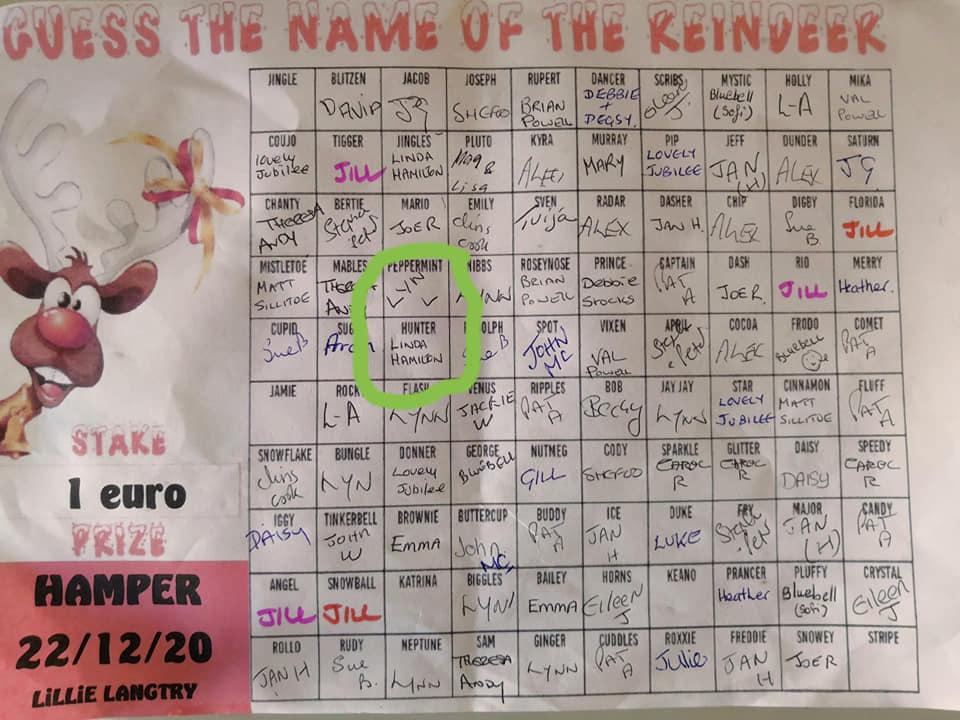 GUESS THE NAME OF THE REINDEER
JINGLE BLITZEN JACOB JOSEPH RUPERT DANCER SCRIBS MYSTIC HOLLY MIKA
DAVID JG SHEFOO BRIAN POWELL DEBBIE + DEGSY. Bluebell (Sofi) L-A VAL POWELL
COUJO TIGGER JINGLES PLUTO KYRA MURRAY PIP JEFF DUNDER SATURN
lovely Jubilee JILL LINDA HAMILTON Mag & Lisa ALEX MARY LOVELY JUBILEE JAN (H) ALEX JG
CHANTY BERTIE MARIO EMILY SVEN RADAR DASHER CHIP DIGBY FLORIDA
THERESA ANDY JOER chris cook ALEX JAN H. ALEX Sue B. JILL
MISTLETOE MABLES PEPPERMINT NIBBS ROSEYNOSE PRINCE CAPTAIN DASH RIO MERRY
MATT SILLITOE LYN LYNN BRIAN POWELL Debbie Stocks PAT A JOER. JILL Heather.
CUPID HUNTER SPOT VIXEN APRIL COCOA FRODO COMET
Sue B LINDA HAMILTON Sue B JOHN MC VAL POWELL ALEX Bluebell PAT A
JAMIE ROCK FLASH VENUS RIPPLES BOB JAY JAY STAR CINNAMON FLUFF
L-A LYNN JACKIE W PAT A BECKY LYNN LOVELY JUBILEE MATT SILLITOE PAT A
SNOWFLAKE BUNGLE DONNER GEORGE NUTMEG CODY SPARKLE GLITTER DAISY SPEEDY
chris cook LYN Lovely Jubilee BLUEBELL GILL SHEFOO CAROL R CAROL R DAISY CAROL R
IGGY TINKERBELL BROWNIE BUTTERCUP BUDDY ICE DUKE FRY MAJOR CANDY
DAISY JOHN W EMMA John MC PAT A JAN H LUKE JAN (H) PAT A
ANGEL SNOWBALL KATRINA BIGGLES BAILEY HORNS KEANO PRANCER PLUFFY CRYSTAL
JILL JILL LYN EMMA Eileen J Heather Bluebell (Sofi) Eileen J
ROLLO RUDY NEPTUNE SAM GINGER CUDDLES ROXXIE FREDDIE SNOWEY STRIPE
JAN H Sue B. LYNN THERESA ANDY LYNN PAT A Julie JAN H JOER
STAKE
1 euro
PRIZE
HAMPER
22/12/20
LiLLiE LANGTRY